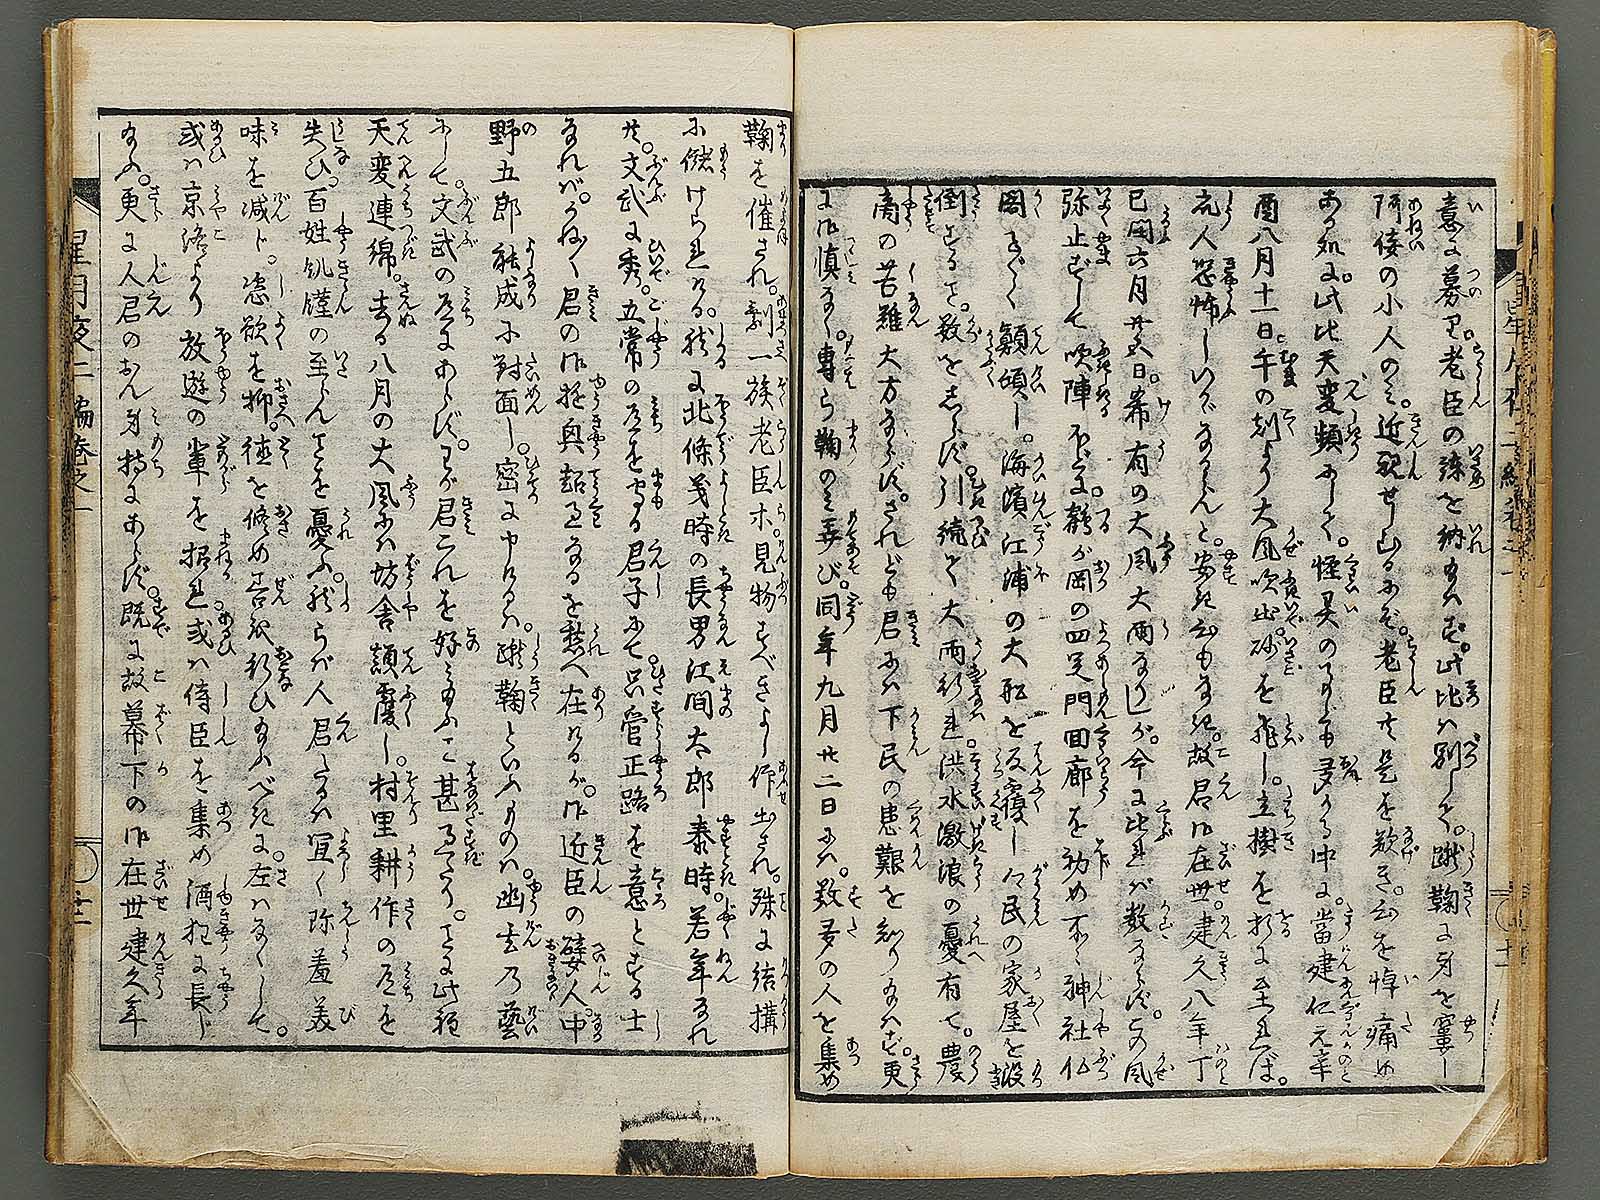 意に募り。老臣の諫を納給はず。此比は別して。蹴鞠に身を窶し
阿倭の小人のみ。近親せしむるにぞ。老臣共是を歎き。心を悼痛め
ある処に。此比天変頻にして。怪異の事ども多かる中に。當建仁元辛
酉八月十一日午の刻より大風吹出。砂を飛し。立樹を折に至れば。
諸人恐怖し。いかゞならんと。安き心もなき。故君御在世。建久八年丁
巳閏六月廿五日。希有の大風大雨なりしが。今に比れば数ならず。この風
弥止ずして吹陣ず。鶴が岡の四足門回廊を初め。所々神社仏
閣こと〴〵く顛傾し。海濱江浦の大船を反覆し。人民の家屋を毀
倒すること。数をしらず。引続て大雨、洪水激浪の憂有て。農
商の苦難大方ならず。されども君には下民の患難を知り給はず。更
に御慎なく。専ら鞠のみ弄び。同年九月廿二日には。数多の人を集め
鞠を催され。剰一族老臣ホ。見物すべきよし仰出され。殊に結構
に儲けられける。然に北條義時の長男江間太郎泰時。若年なれ
共。文武に秀。五常の道を守る君子にて。只管正路を意とする士
なれば。かねて君の御遊興超過なるを愁へ在けるが。御近臣の嬖人。中
野五郎能成に對面し。密に申けるは。蹴鞠といふものは。幽玄乃藝
にして。文武の道にあらず。わが君これを好み給ふこと甚过たり。ことに此程
天変連綿。去る八月の大風には坊舎顛覆し。村里耕作の道を
失ひ。百姓飢饉の至らんことを憂ふ。然らば人君たるは宜く弥羞美
味を減じ。恣欲を抑へ。徳を修め善政を行ひ給ふべきに。左はなくして。
或は京洛より放遊の輩を招れ。或は侍臣を集め酒狂に長じ
給ふ。更に人君のおん身持にあらず。既に故幕下の御在世建久年
星月夜二編巻之一